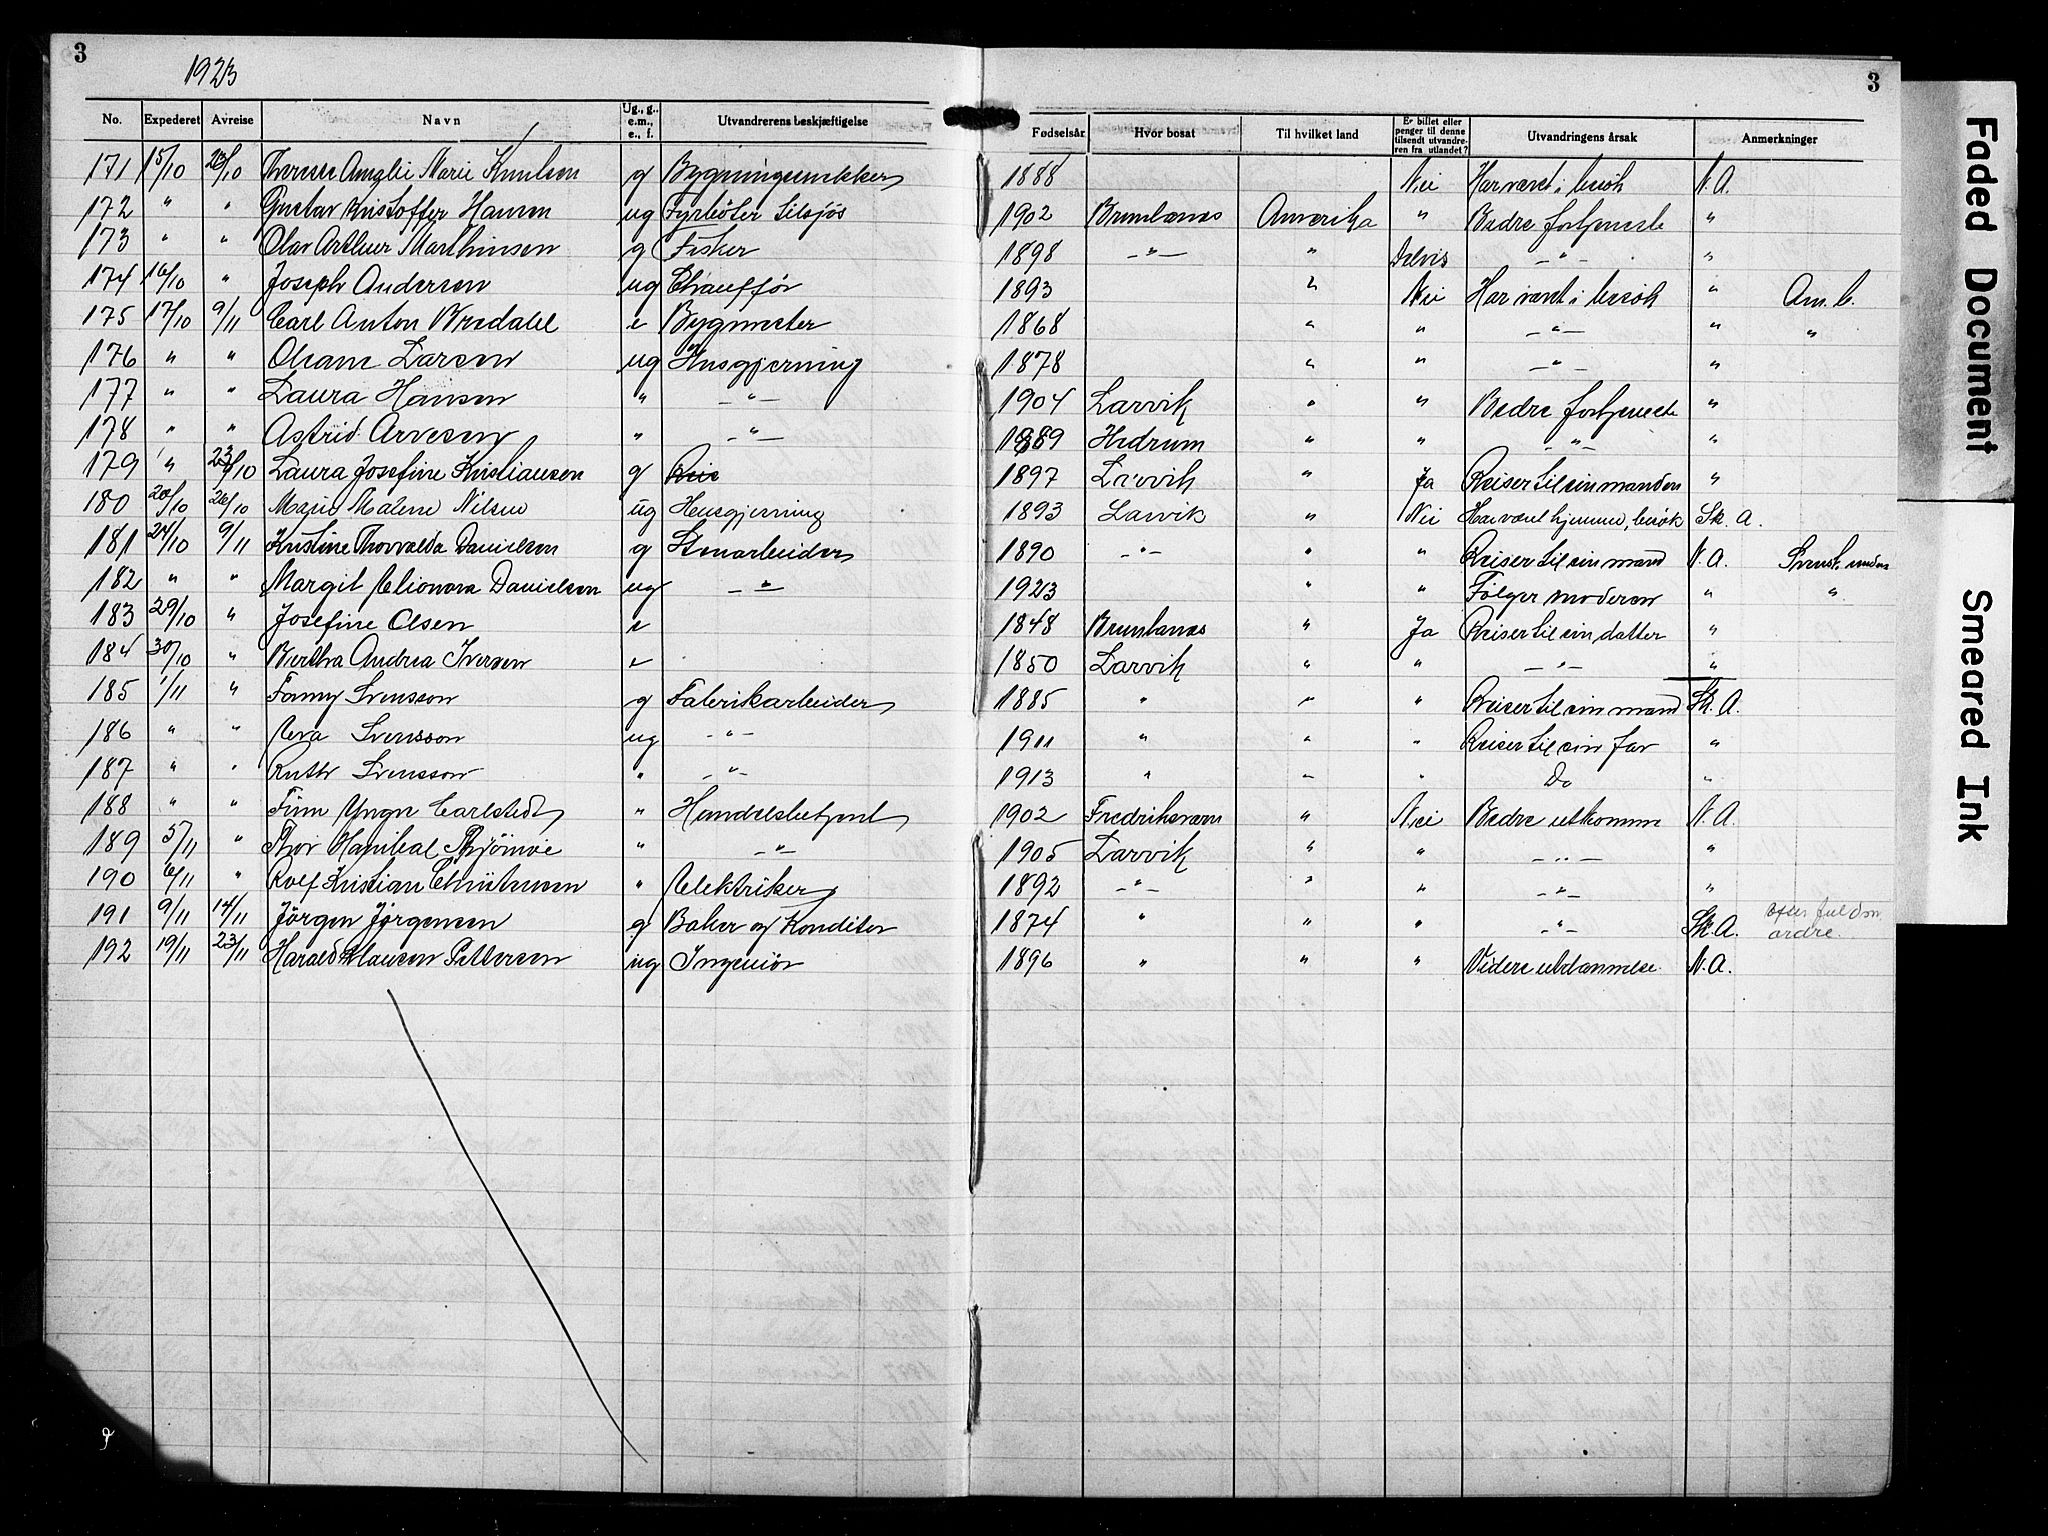 3
1923
No. Expederet Avreise Navn Ug., g., e.m., e., f. Utvandrerens beskjæftigelse
3
Fødselsår Hvor bosat Til hvilket land Er billet eller penger til denne tilsendt utvandreren fra utlandet? Utvandringens årsak Anmerkninger
171 15/10 23/10 Therese Amalie Marie Knudsen g Bygningssnekker 1888 Nei Har været i besøk N. A.
172 " " Gustav Kristoffer Hansen ug Fyrbøter tilsjøs 1902 Brunlanæs Amerika " Bedre fortjeneste "
173 " " Olav Arthur Marthinsen g Fisker 1898 —"— " Delvis —"— "
174 16/10 " Joseph Andersen ug Chauffør 1893 " Nei Har været i besøk " Am. b.
175 17/10 9/11 Carl Anton Bredahl e Bygmester 1868 " " —"— " "
176 " " Larsen ug Husgjerning 1878 " " —"— "
177 " " Laura Hansen " —"— 1904 Larvik " " Bedre fortjeneste "
178 " " Astrid Arvesen " —"— 1889 Hedrum " " —"— "
179 " 23/10 Laura Josefine Kristiansen g 1897 Larvik " Ja Reiser til sin manden "
180 20/10 26/10 Malene Nilsen ug Husgjerning 1893 Larvik " Nei Har været hjemme, besøk Sk. A.
181 24/10 9/11 Kristine Thorvalda Danielsen g Stenarbeider 1890 —"— " " Reiser til sin mand N. A. Svensk
182 " " Margit Elionora Danielsen ug —"— 1923 " " Følger moderen " "
183 29/10 " Josefine Olsen e 1848 Brunlanæs " Ja Reiser til sin datter "
184 30/10 " Bertha Andrea Iversen e 1850 Larvik " " —"— "
185 1/11 " Fanny Svensson g Fabrikarbeider 1885 " " " Reiser til sin mand Sk. A.
186 " " Svensson ug —"— 1911 " " " Reiser til sin far "
187 " " Ruth Svensson " —"— 1913 " " " Do "
188 " " Finn Yngve Carlstedt " Handelsbetjent 1902 Fredriksværn " Nei Bedre utkomme N. A.
189 5/11 " Thor Hanibal " —"— 1905 Larvik " " —"— "
190 6/11 " Rolf Kristian Christensen " Elektriker 1892 —"— " " —"— "
191 9/11 14/11 Jørgen Jørgensen g Baker og Konditor 1874 " " " —"— Sk. A. ordre.
192 19/11 23/11 Harald Hansen Pettersen ug Ingeniør 1896 " " " Videre utdannelse. N. A.
Faded Document
Smeared Ink